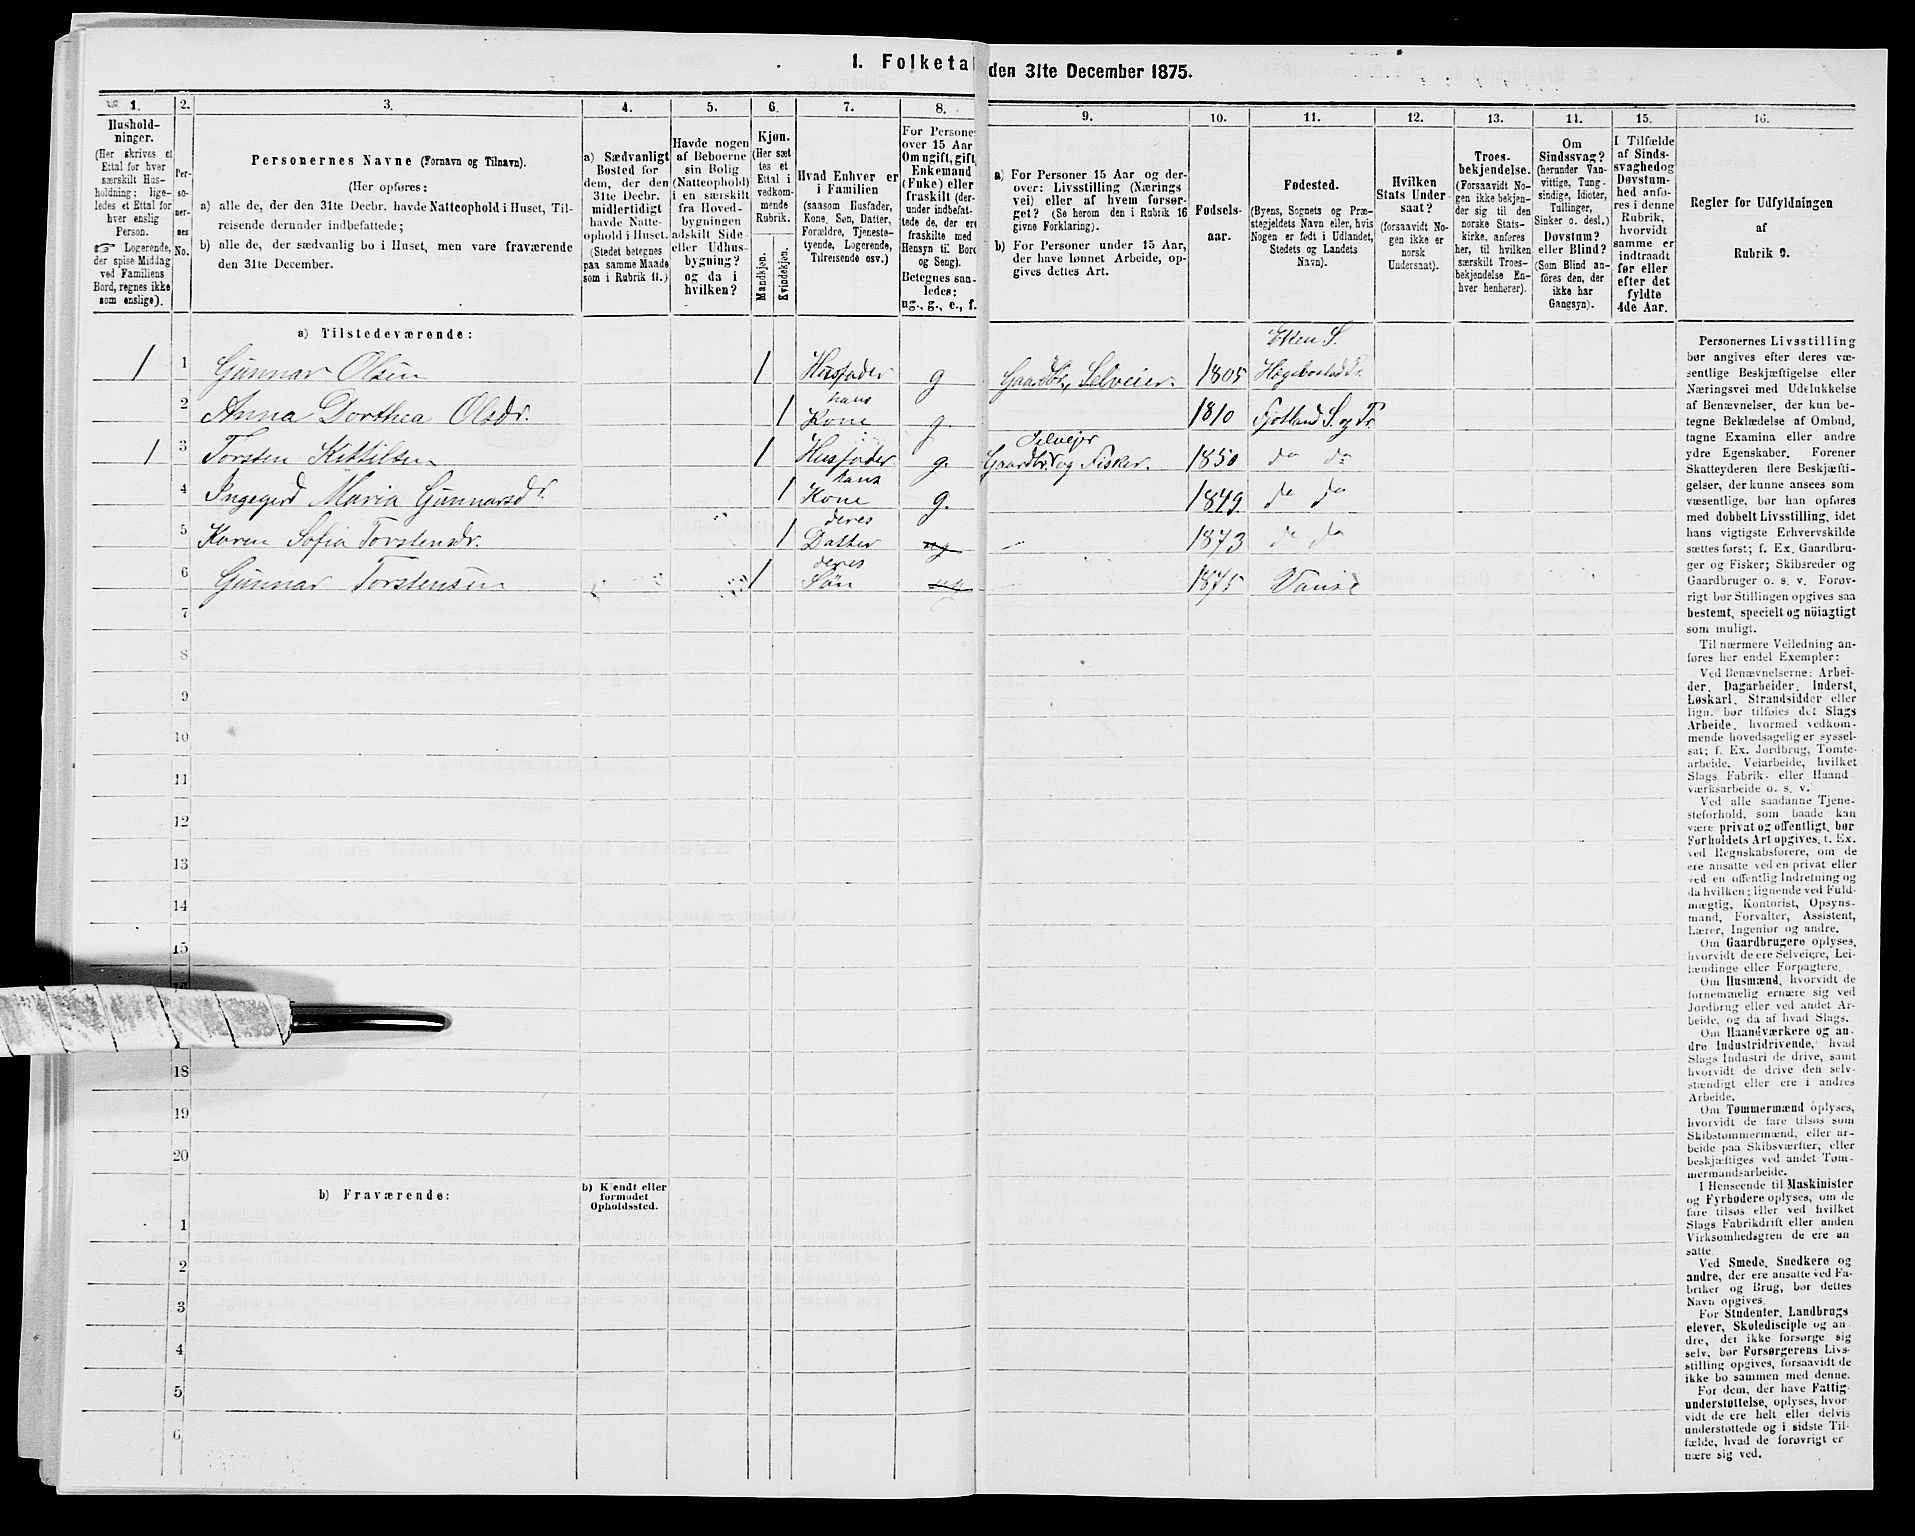 1. Folketal den 31te December 1875.
1. 2. 3. 4. 5. 6. 7. 8. 9. 10. 11. 12. 13. 14. 15. 16.
Hushold-
ninger.
(Her skrives et
Ettal for hver
særskilt Hus-
holdning; lige-
ledes et Ettal for
hver enslig
Person.
☞ Logerende,
der spise Middag
ved Familiens
Bord, regnes ikke
som enslige).
Per-
so-
ner-
nes
No.
Personernes Navne (Fornavn og Tilnavn).
(Her opføres:
a) alle de, der den 31te Decbr. havde Natteophold i Huset, Til-
reisende derunder indbefattede;
b) alle de, der sædvanlig bo i Huset, men vare fraværende
den 31te December.
a) Sædvanligt
Bosted for
dem, der den
31te Decbr.
midlertidigt
havde Natte-
ophold i Huset.
(Stedet betegnes
paa samme Maade
som i Rubrik 11.)
Havde nogen
af Beboerne
sin Bolig
(Natteophold)
i en særskilt
fra Hoved-
bygningen
adskilt Side-
eller Udhus-
bygning?
og da i
hvilken?
Kjøn.
(Her sæt-
tes et
Ettal i
vedkom-
mende
Rubrik.
Mandkjøn.
Kvindekjøn.
Hvad Enhver er
i Familien
(saasom Husfader,
Kone, Søn, Datter,
Forældre, Tjeneste-
tyende, Logerende,
Tilreisende osv.)
For Personer
over 15 Aar
Om ugift, gift,
Enkemand
(Enke) eller
fraskilt (der-
under indbefat-
tede de, der ere
fraskilte med
Hensyn til Bord
og Seng).
Betegnes saa-
ledes:
ug., g., e., f.
a) For Personer 15 Aar og der-
over: Livsstilling (Nærings
vei) eller af hvem forsør-
get? (Se herom den i Rubrik 16
givne Forklaring).
b) For Personer under 15 Aar,
der have lønnet Arbeide, op-
gives dettes Art.
Fødsels-
aar.
Fødested.
(Byens, Sognets og Præ-
stegjeldets Navn eller, hvis
Nogen er født i Udlandet,
Stedets og Landets
Navn).
Hvilken
Stats Under
saat?
(forsaavidt No-
gen ikke er
norsk
Undersaat).
Troes-
bekjendelse.
(Forsaavidt No-
gen ikke bekjen-
der sig til den
norske Stats-
kirke, anføres
her, til hvilken
særskilt Troes-
bekjendelse En-
hver henhører).
Om
Sindssvag?
(herunder Van-
vittige, Tung-
sindige, Idioter,
Tullinger,
Sinker o. desl.)
Døvstum?
eller Blind?
(Som Blind an-
føres den, der
ikke har
Gangsyn).
I Tilfælde
af Sinds-
svaghed og
Døvstum-
hed anfø-
res i denne
Rubrik,
hvorvidt
samme er
indtraadt
før eller
efter det
fyldte
4de Aar.
Regler for Udfyldningen
af
Rubrik 9.
a) Tilstedeværende:
1 1 Gunnar Olsen 1 Husfader g Gaardbr, Selveier. 1805 Eiken S. Hægebostad Pr.
2 Anna Dorthea Olsdr. 1 hans Kone g 1810 Fjotland S. og Pr
1 3 Torsten Kittilsen 1 Husfader g. Selvejer Gaardbr. og Fisker. 1850 do do
4 Ingegerd Maria Gunnarsdr. 1 hans Kone g. 1849 do do
5 Karen Sofia Torstensdr. 1 deres Datter ug 1873 do do
6 Gunnar Torstensen 1 deres Søn ug 1875 Vanse
7
8
9
10
11
12
13
14
15
18
19
20
b) Fraværende:
b) Kjendt eller
formodet
Opholdssted.
1
2
3
4
5
6
Personernes Livsstilling
bør angives efter deres væ-
sentlige Beskjæftigelse eller
Næringsvei med Udelukkelse
af Benævnelser, der kun be-
tegne Beklædelse af Ombud,
tagne Examina eller andre
ydre Egenskaber. Forener
Skatteyderen flere Beskjæfti-
gelser, der kunne ansees som
væsentlige, bør han opføres
med dobbelt Livsstilling, idet
hans vigtigste Erhvervskilde
sættes først; f. Ex. Gaardbru-
ger og Fisker; Skibsreder og
Gaardbruger o. s. v. Forøv-
rigt bør Stillingen opgives saa
bestemt, specielt og nöiagtigt
som muligt.
Til nærmere Veiledning an-
føres her endel Exempler:
Ved Benævnelserne: Arbei-
der, Dagarbeider, Inderst,
Løskarl, Strandsidder eller
lign. bør tilføies det Slags
Arbeide, hvormed vedkom-
mende hovedsagelig er syssel-
sat; f. Ex. Jordbrug, Tomte-
arbeide, Veiarbeide, hvilket
Slags Fabrik- eller Haand
værksarbeide o. s. v.
Ved alle saadanne Tjene-
steforhold, som baade kan
være privat og offentligt, bør
Forholdets Art opgives, t. Ex.
ved Regnskabsførere, om de
ere ansatte ved en privat eller
ved en offentlig Indretning og
da hvilken; lignende ved Fuld-
mægtig, Kontorist, Opsyns-
mand, Forvalter, Assistent,
Lærer, Ingeniør og andre.
Om Gaardbrugere oplyses,
hvorvidt de ere Selveiere, Lei-
lændinge eller Forpagtere.
Om Husmænd, hvorvidt de
fornemmelig ernære sig ved
Jordbrug eller ved andet Ar-
beide, og da af hvad Slags.
Om Haandværkere og an-
dre Industridrivende, hvad
Slags Industri de drive, samt
hvorvidt de drive den selv-
stændigt eller ere i andres
Arbeide.
Om Tømmermænd oplyses,
hvorvidt de fare tilsøs som
Skibstømmermænd, eller ar-
beide paa Skibsværfter, eller
beskjæftiges ved andet Tøm-
mermandsarbeide.
I Henseende til Maskinister
og Fyrbødere oplyses, om de
fare tilsøs eller ved hvilket
Slags Fabrikdrift eller anden
Virksomhedsgren de ere an-
satte.
Ved Smede, Snedkere og
andre, der ere ansatte ved Fa-
briker og Brug, bør dettes
Navn opgives.
For Studenter, Landbrugs
elever, Skoledisciple og an-
dre, der ikke forsørge sig
selv, bør Forsørgerens Livs-
stilling opgives, forsaavidt de
ikke bo sammen med denne.
For dem, der have Fattig-
understøttelse, oplyses, hvor-
vidt de ere helt eller delvis
understøttede og i sidste Til-
fælde, hvad de forøvrigt er
nære sig ved.